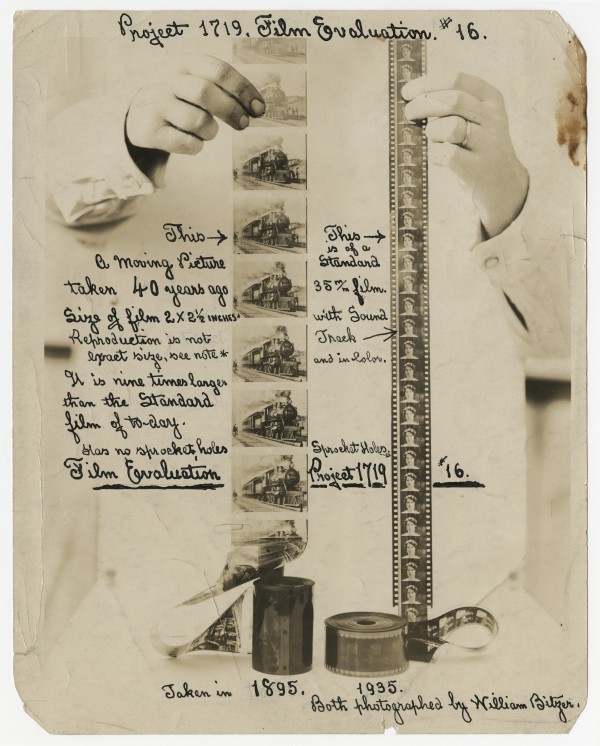 Project 1719. Film Evaluation. #16.
This →
A Moving Picture
taken 40 years ago
Size of film 2 X 2½ INCHES
Reproduction is not
exact size, see note *
It is nine times larger
than the Standard
film of to-day.
Has no sprocket holes
Film Evaluation
This →
is of a
Standard
35 m/m film.
with Sound
Track →
and in Color.
Sprocket Holes.
Project 1719
#16.
Taken in 1895.
1935.
Both photographed by William Bitzer.